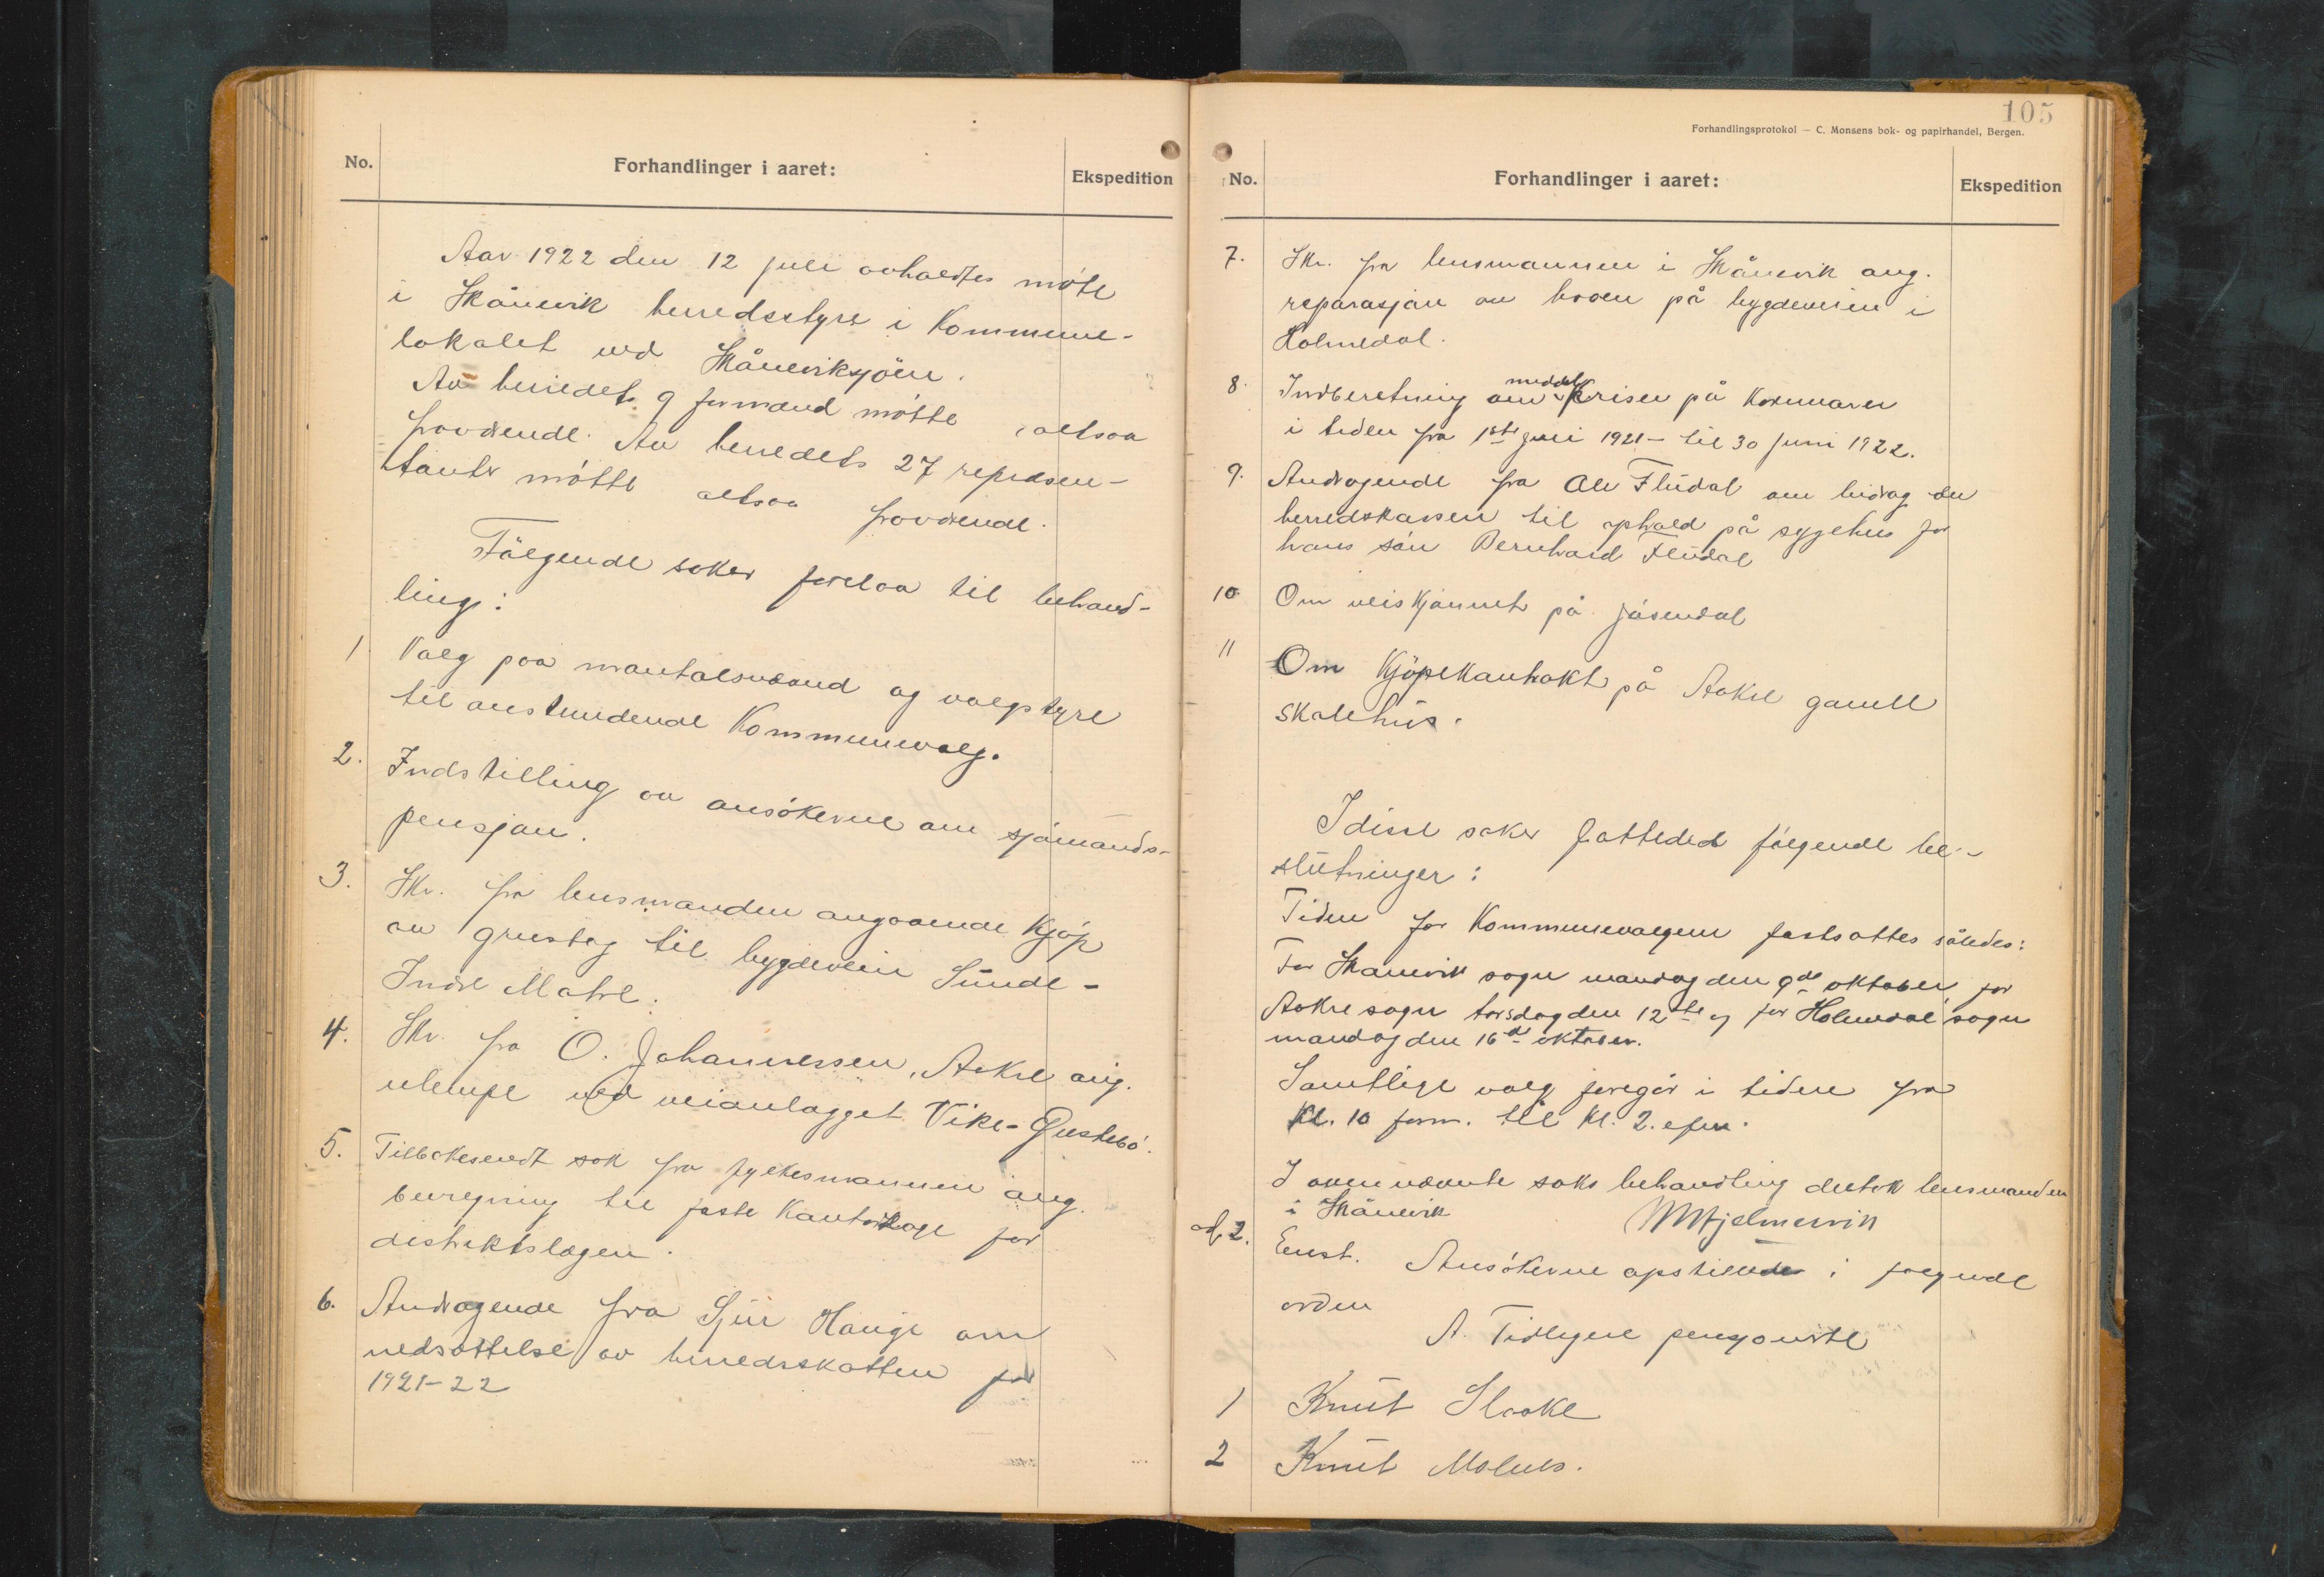 No.
Forhandlinger i aaret:
Ekspedition
Aar 1922 den 12 juli avholdtes möte
i Skånevik herredsstyre i Kommune-
lokalet ved Skåneviksjöen.
Av herredets 9 formænd mötte , altsaa
fraværende. Av herredets 27 repræsen-
tanter mötte altsaa fraværende.
Fölgende saker forelaa til behand-
ling:
1 Valg paa mantalsmænd og valgstyre
til anstundende Kommunevalg.
2. Indstilling av ansökerne om sjömands-
pensjon.
3. Skr. fra lensmanden angaaende Kjöp
av grustag til bygdeveien Sunde-
Indre Matre.
4. Skr. fra O. Johannessen, Aakre ang.
ulempe ved veianlægget Vike-Gustebö.
5. Tilbakesendt sak fra fylkesmannen ang.
beregning til faste Kantordage for
distriktslægen.
6. Andragende fra Sjur Hauge om
nedsættelse av herredsskatten for
1921-22
105
Forhandlingsprotokol — C. Monsens bok- og papirhandel, Bergen.
No.
Forhandlinger i aaret:
Ekspedition
7. Skr. fra lensmannen i Skånevik ang.
reparasjon av broen på bygdeveien i
Holmedal.
8. Indberetning om meddel Prisen på Kornvarer
i tiden fra 1ste juli 1921 - til 30 juni 1922.
9. Andragende fra Ole Fludal om bidrag av
herredskassen til ophold på sygehus for
hans sön Bernhard Fludal
10 Om veiskjönnet på Jösendal
11 Om Kjöpekontrakt på Aakre gamle
skolehus.
I disse saker fattedes fölgende be-
slutninger:
Tiden for Kommunevalgene fastsattes således:
For Skånevik sogn mandag den 9de oktober, for
Aakre sogn torsdag den 12te og for Holmedal sogn
mandag den 16de oktober.
Samtlige valg foregår i tiden fra
Kl. 10 form. til Kl. 2. efm.
I ovennævnte saks behandling deltok lensmanden
i Skånevik M Mjelmervik
ad 2. Enst. Ansökerne opstilledes i fölgende
orden
A. Tidligere pensjonerte
1 Knut Slaake
2 Knut Molnes.